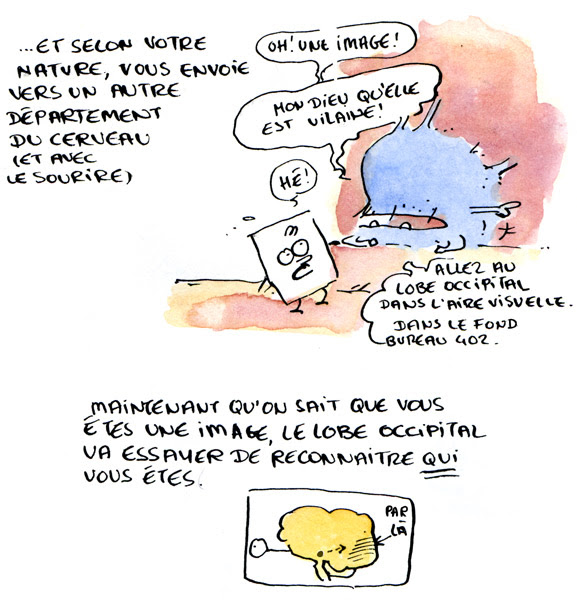 ...ET SELON VOTRE
NATURE, VOUS ENVOIE
VERS UN AUTRE
DÉPARTEMENT
DU CERVEAU
(ET AVEC
LE SOURIRE)
OH! UNE IMAGE!
MON DIEU QU'ELLE
EST VILAINE!
HÉ!
ALLEZ AU
LOBE OCCIPITAL
DANS L'AIRE VISUELLE.
DANS LE FOND
BUREAU 402.
MAINTENANT QU'ON SAIT QUE VOUS
ÊTES UNE IMAGE, LE LOBE OCCIPITAL
VA ESSAYER DE RECONNAITRE QUI
VOUS ÊTES.
PAR
LÀ